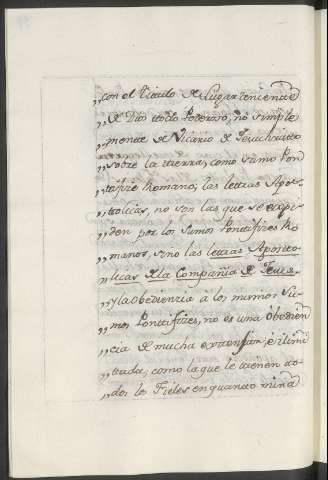 „con el titulo de Lugarteniente
„de Dios todo Poderoso, no simple
„mente de Vicario de Jesuchristo
„sobre la tierra, como sumo Pon
„tifize Romano, las letras Apos-
„tolicas, no son las que se expi-
„den por los Sumos Pontifizes Ro
„manos, sino las letras Aposto-
„licas de la Compañia de Jesus,
„y la obedienzia a los mismos Su-
„mos Pontifizes, no es una obedien
„cia de mucha extension, è ilimi
„tada, como la que le tienen to-
„dos los Fieles en quanto mira